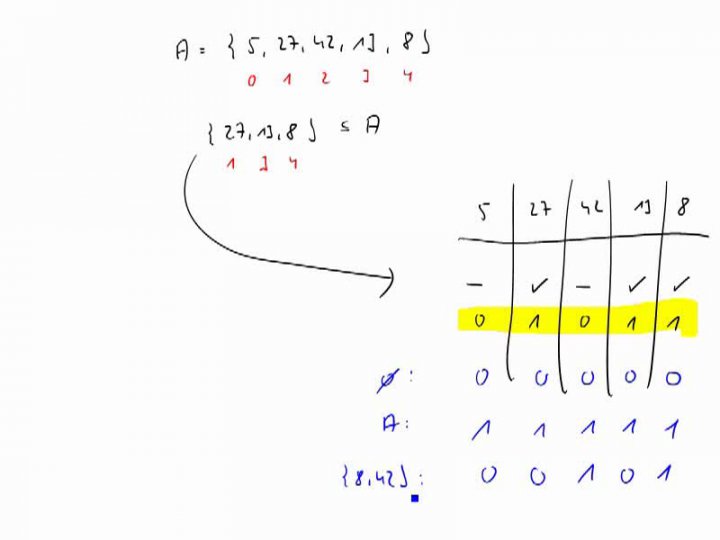 A = { 5, 27, 42, 13, 8 }
0 1 2 3 4
{ 27, 13, 8 } ⊆ A
1 3 4
5 27 42 13 8
– ✓ – ✓ ✓
0 1 0 1 1
∅: 0 0 0 0 0
A: 1 1 1 1 1
{8,42}: 0 0 1 0 1